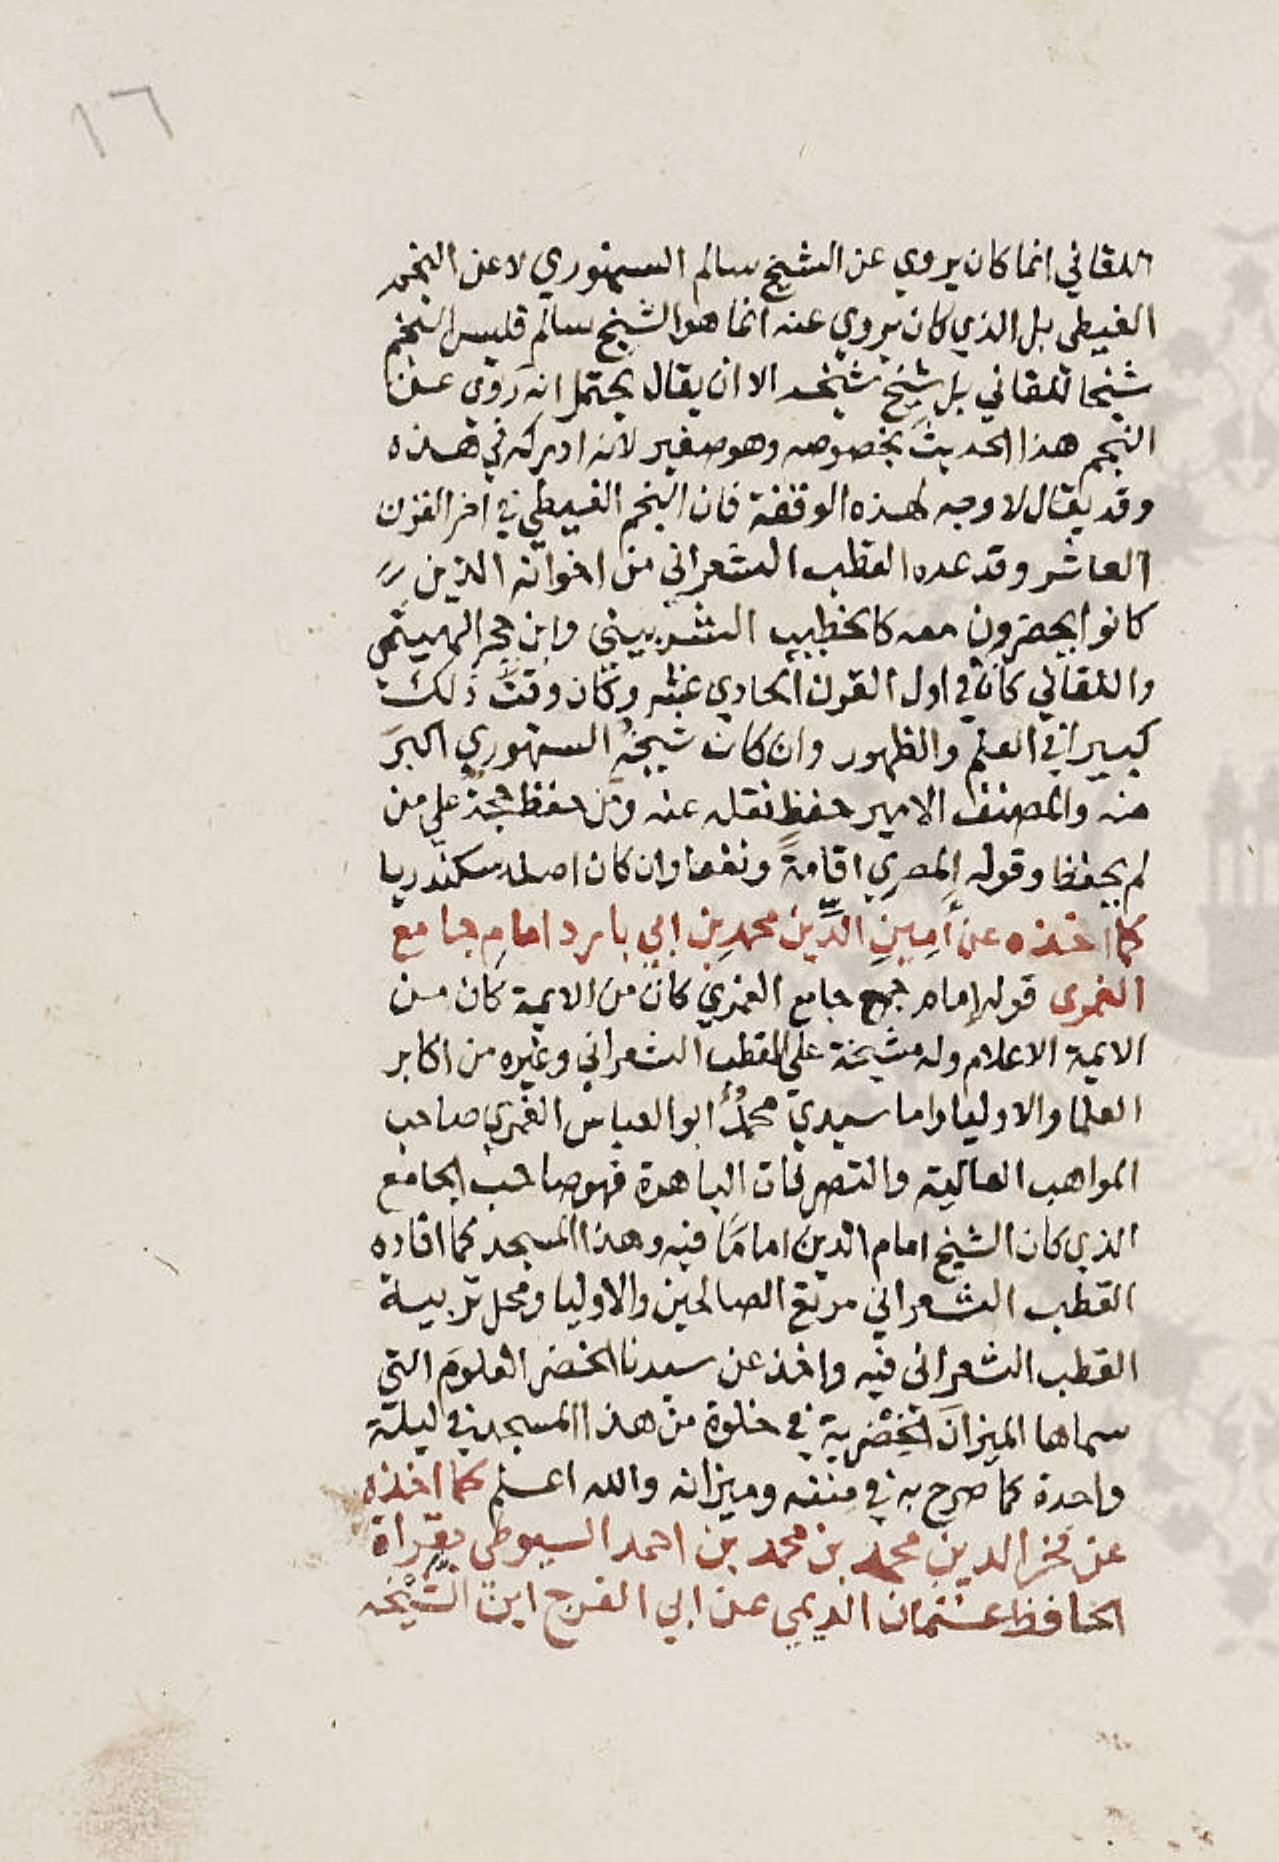 ١٦
اللقاني انما كان يروي عن الشيخ سالم السنهوري لا عن النجم
الغيطي بل الذي كان يروي عنه انما هو الشيخ سالم فليس النجم
شيخا للقاني بل شيخ شيخه الا ان يقال يحتمل انه روى عن
النجم هذا الحديث بخصوصه وهو صغير لانه ادركه في هذه
وقد يقال لا وجه لهذه الوقفة فان النجم الغيطي في اخر القرن
العاشر وقد عده القطب الشعراني من اخوانه الذين
كانوا يحضرون معه كالخطيب الشربيني وابن حجر الهيتمي
واللقاني كان في اول القرن الحادي عشر وكان وقت ذلك
كبيرا في العلم والظهور وان كان شيخه السنهوري اكبر
منه والمصنف الامير حفظ نقله عنه ومن حفظ حجة على من
لم يحفظ وقوله المصري اقامة ونفعا وان كان اصله سكندريا
كما اخذه عن أمين الدين محمد بن ابي بامرد امام جامع
الغموى قوله إمام جمع جامع الغمري كان من الايمة كان من
الايمة الاعلام وله مشيخة على القطب الشعراني وغيره من اكابر
العلما والاوليا واما سيدي محمد أبو العباس الغمري صاحب
المواهب العالية والتصرفات الباهرة فهو صاحب الجامع
الذي كان الشيخ امام الدين اماما فيه وهذا المسجد كما افاده
القطب الشعراني مرتع الصالحين والاوليا ومحل تربية
القطب الشعرانى فيه واخذ عن سيدنا الخضر العلوم التي
سماها الميزان الخضرية في خلوة من هذا المسجد في ليلة
واحدة كما صرح به في مننه وميزانه والله اعلم كما اخذه
عن فخر الدين محمد بن محمد بن احمد السيوطي بقراة
الحافظ عثمان الديمي عن ابي الفرج ابن الشيخه